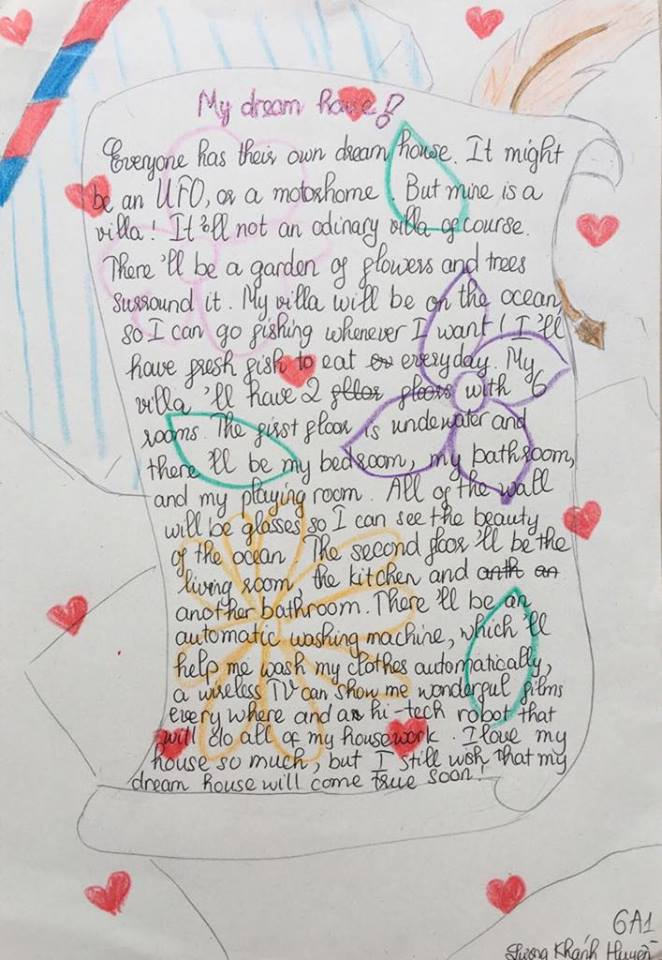 My dream house!
Everyone has their own dream house. It might
be an UFO, or a motorhome. But mine is a
villa! It'll not an odinary villa of course.
There'll be a garden of flowers and trees
surround it. My villa will be on the ocean
so I can go fishing whenever I want! I'll
have fresh fish to eat or everyday. My
villa 'll have 2 floor floors with 6
rooms. The first floor is underwater and
there'll be my bedroom, my bathroom,
and my playing room. All of the wall
will be glasses so I can see the beauty
of the ocean. The second floor'll be the
living room, the kitchen and anth an
another bathroom. There'll be an
automatic washing machine, which'll
help me wash my clothes automatically,
a wireless TV can show me wonderful films
every where and an hi-tech robot that
will do all of my housework. I love my
house so much, but I still wish that my
dream house will come true soon!
6A1
Lương Khánh Huyền